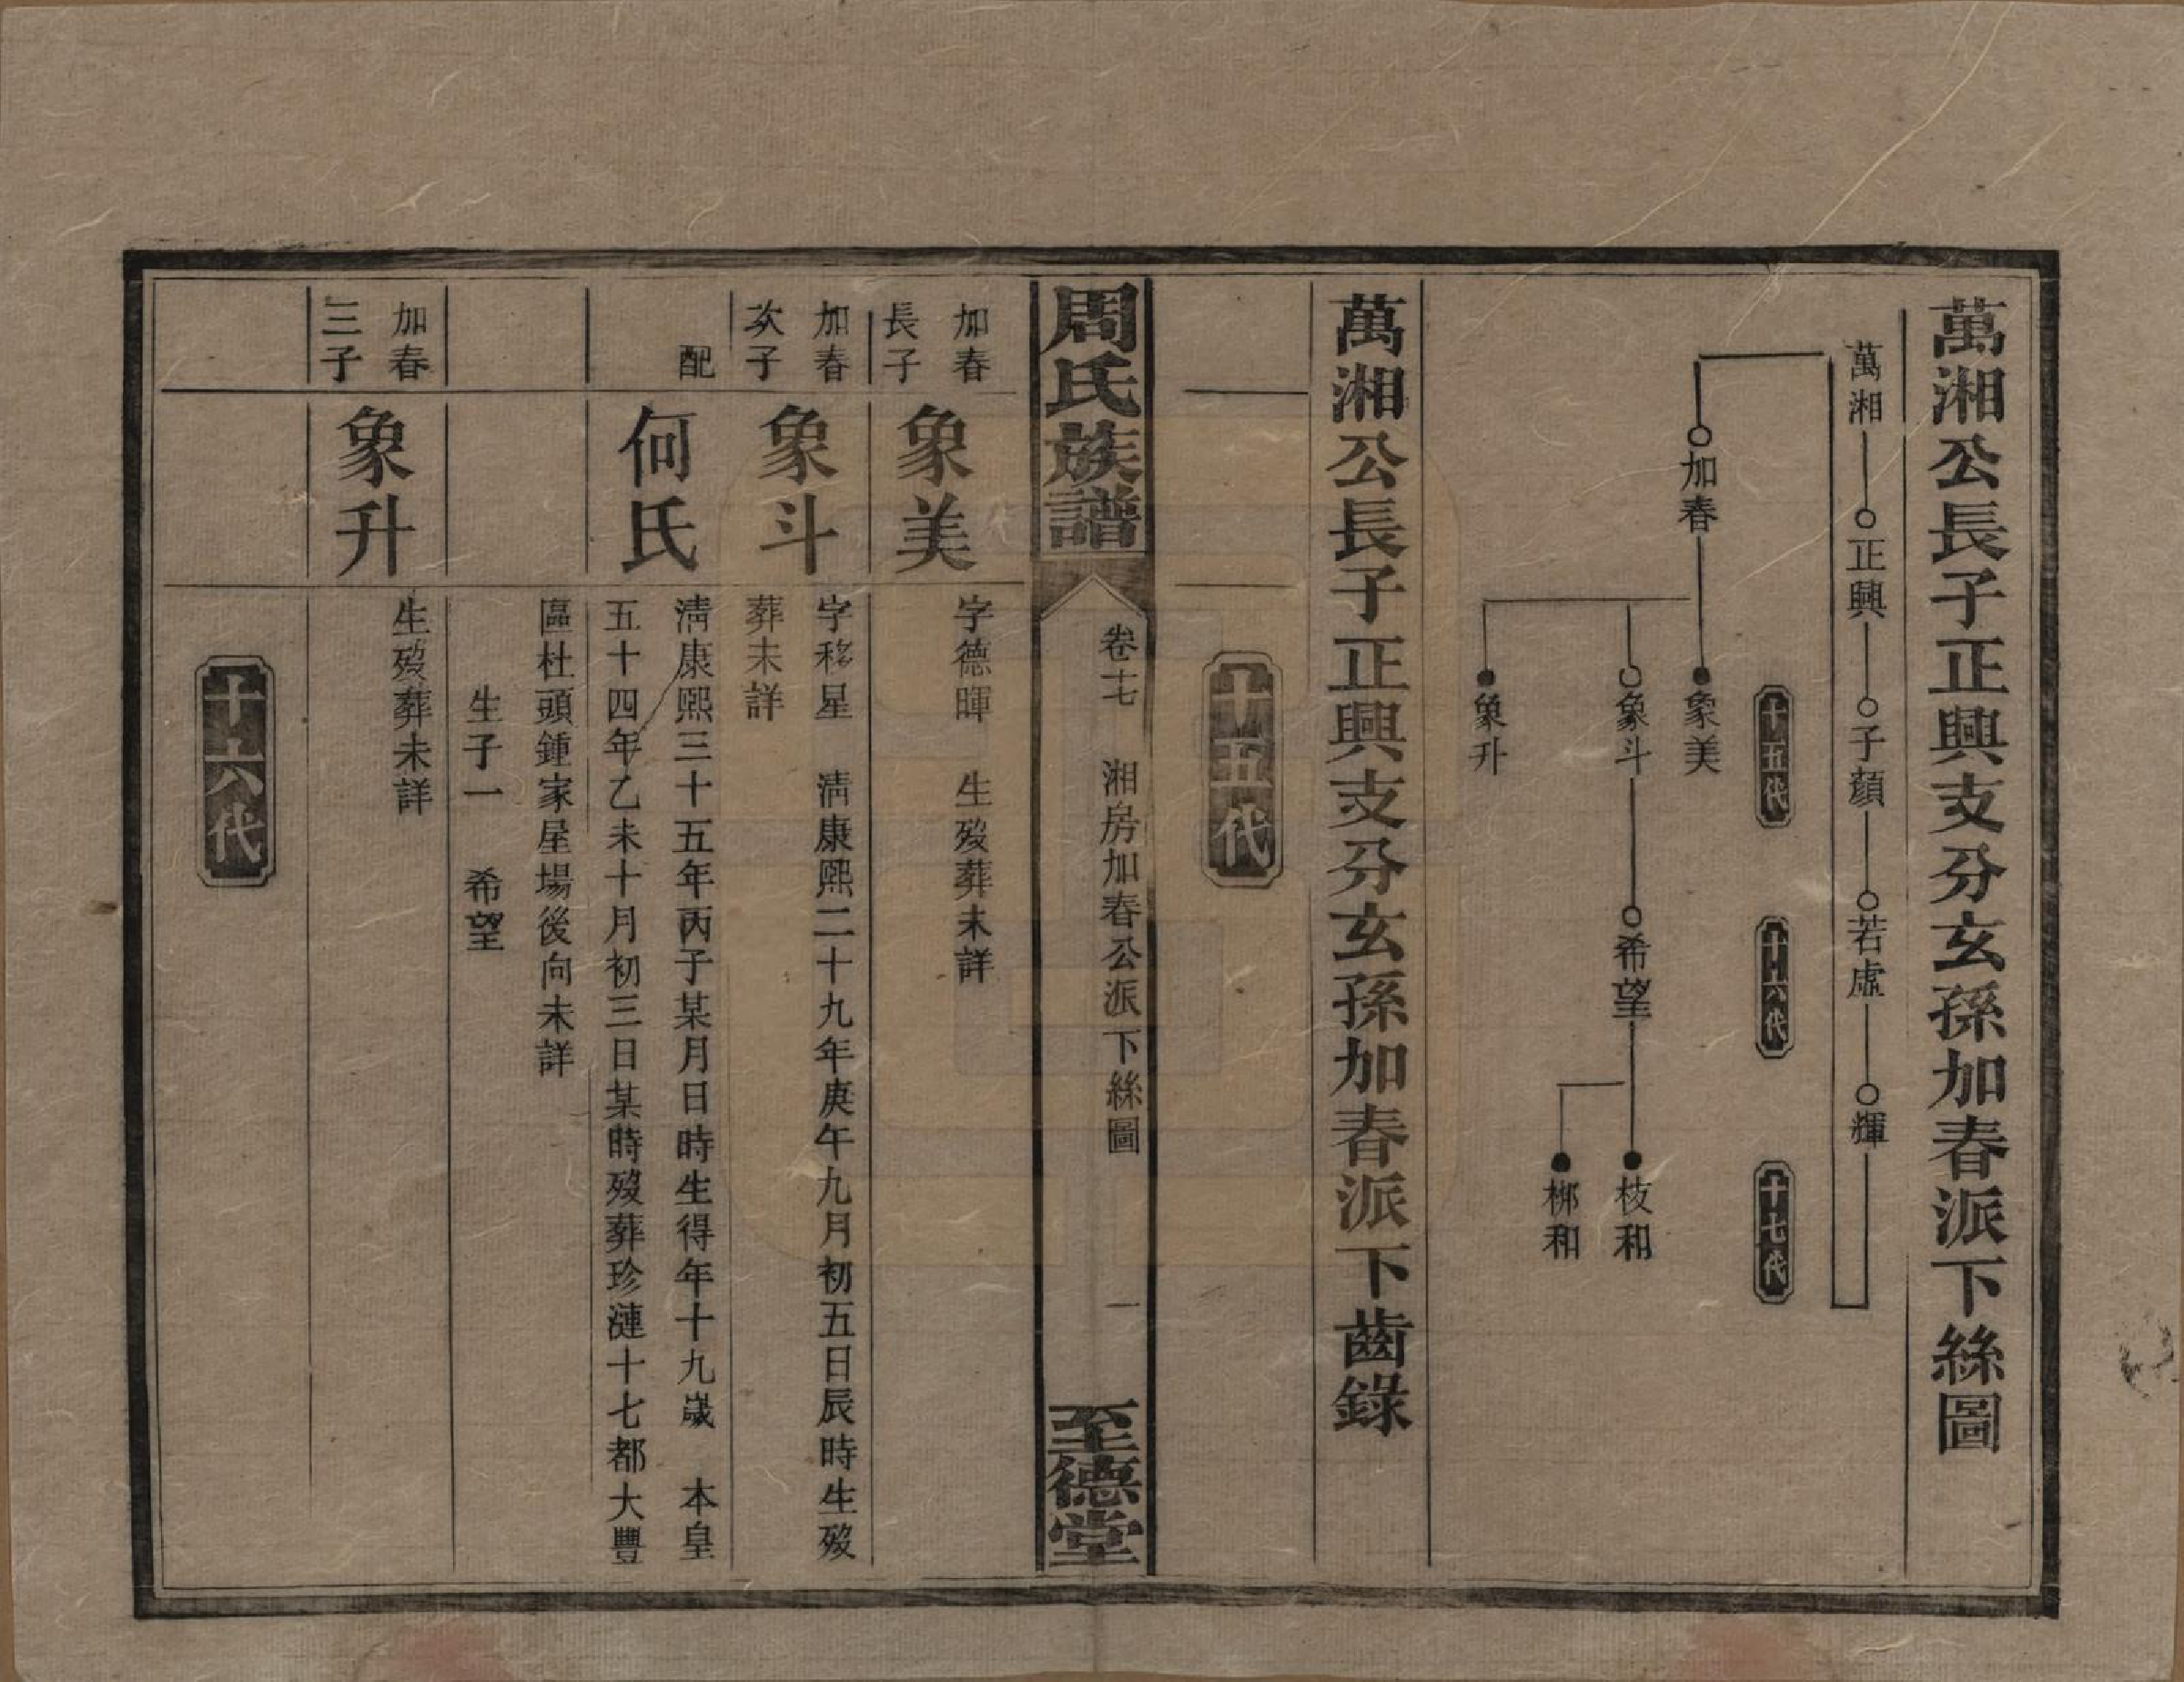 萬湘公長子正興支分玄孫加春派下絲圖
萬湘 正興 子顏 若虛 輝
十五代 十六代 十七代
加春 象美
象斗 希望 枝和
梆和
象升
萬湘公長子正興支分玄孫加春派下齒錄
十五代
周氏族譜 卷十七 湘房加春公派下絲圖 一 至德堂
加春
長子
象美
字德暉 生歿葬未詳
加春
次子
象斗
字移星 清康熙二十九年庚午九月初五日辰時生歿
葬未詳
配
何氏
清康熙三十五年丙子某月日時生得年十九歲 本皇
五十四年乙未十月初三日某時歿葬珍漣十七都大豐
區杜頭鍾家屋場後向未詳
生子一 希望
加春
三子
象升
生歿葬未詳
十六代